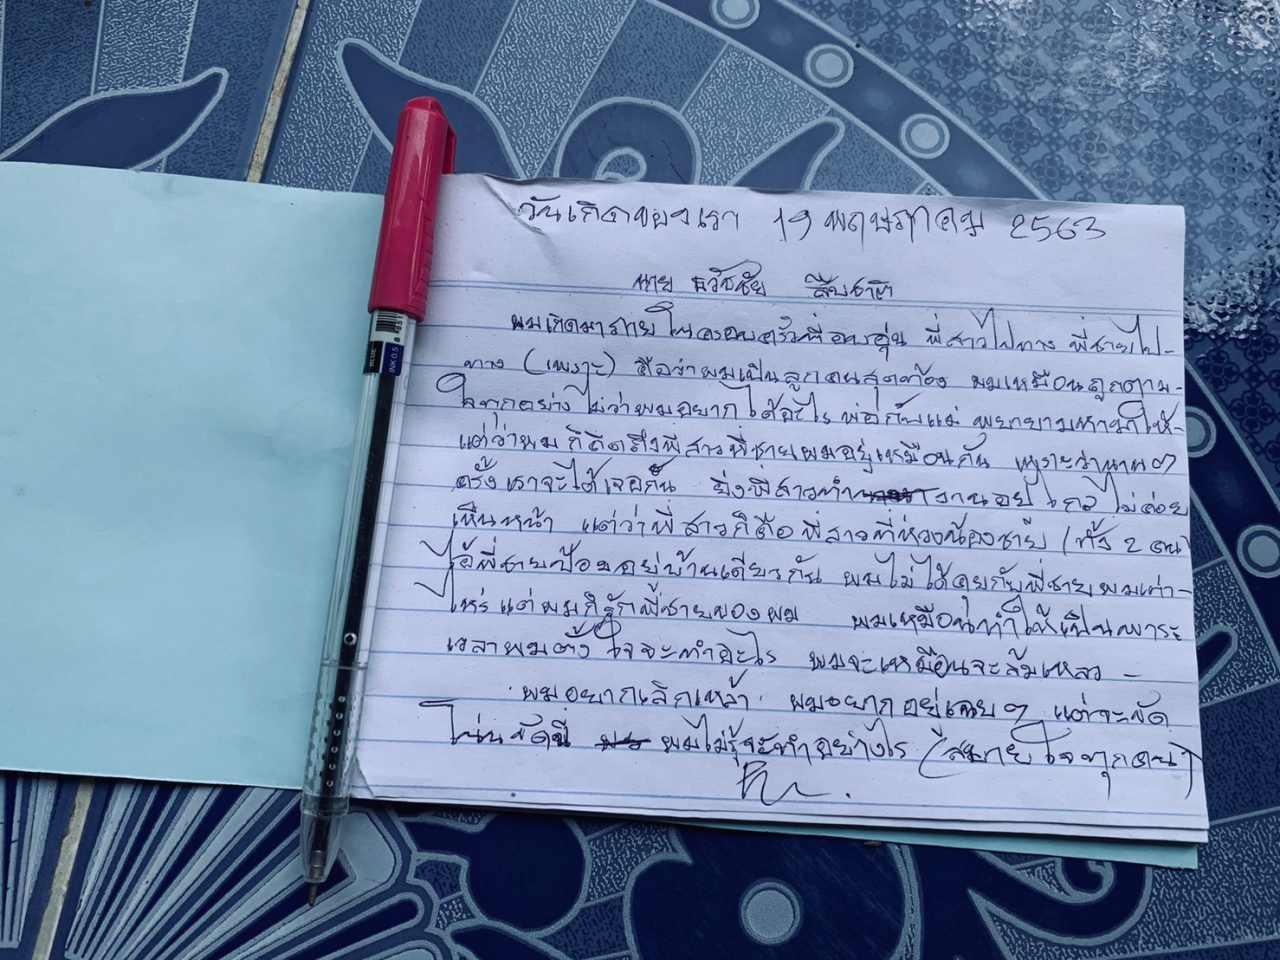 วันเกิดของเรา 19 พฤษภาคม 2563
นาย ธวัชชัย สืบชาติ
ผมเกิดมาภายในครอบครัวที่อบอุ่น พี่สาวไปทาง พี่ชายไป-
ทาง (เพราะ) ถือว่าผมเป็นลูกคนสุดท้อง ผมเหมือนถูกตาม-
ใจทุกอย่าง ไม่ว่าผมอยากได้อะไร พ่อกับแม่ พยายามหามาให้-
แต่ว่าผมก็คิดถึงพี่สาวพี่ชายผมอยู่เหมือนกัน เพราะว่านานๆ
ครั้งเราจะได้เจอกัน ยิ่งพี่สาวทำ งานอยู่ไกลไม่ค่อย
เห็นหน้า แต่ว่าพี่สาวก็คือพี่สาวที่ห่วงน้องชาย (ทั้ง 2 คน)
ไอ้พี่ชายป้อง อยู่บ้านเดียวกัน ผมไม่ได้คุยกับพี่ชายผมเท่า-
ไหร่ แต่ผมก็รักพี่ชายของผม ผมเหมือนทำให้เป็นภาระ
เวลาผมตั้งใจจะทำอะไร ผมจะเหมือนจะล้มเหลว -
ผมอยากเลิกเหล้า ผมอยากอยู่เฉยๆ แต่จะขัด
โน่นขัดนี่ ผมไม่รู้จะทำอย่างไร (สบายใจทุกคน)
BLUE
INK 0.5